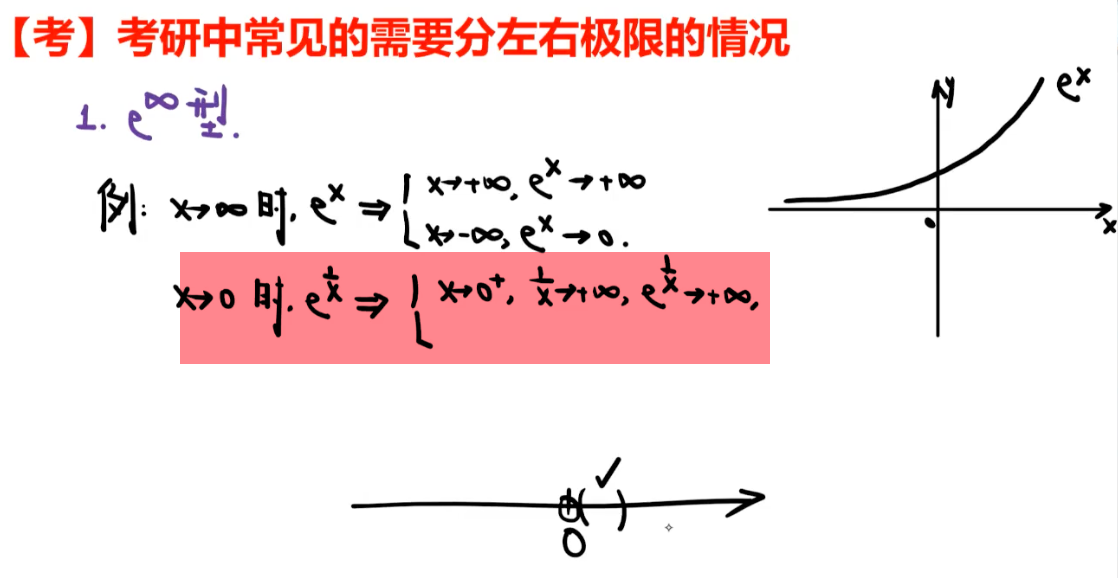 【考】考研中常见的需要分左右极限的情况
1. e^∞ 型.
例: x→∞ 时, e^x ⇒ { x→+∞, e^x→+∞
x→-∞, e^x→0.
x→0 时, e^(1/x) ⇒ { x→0⁺, 1/x→+∞, e^(1/x)→+∞,
y
e^x
0
x
✓
( )
0